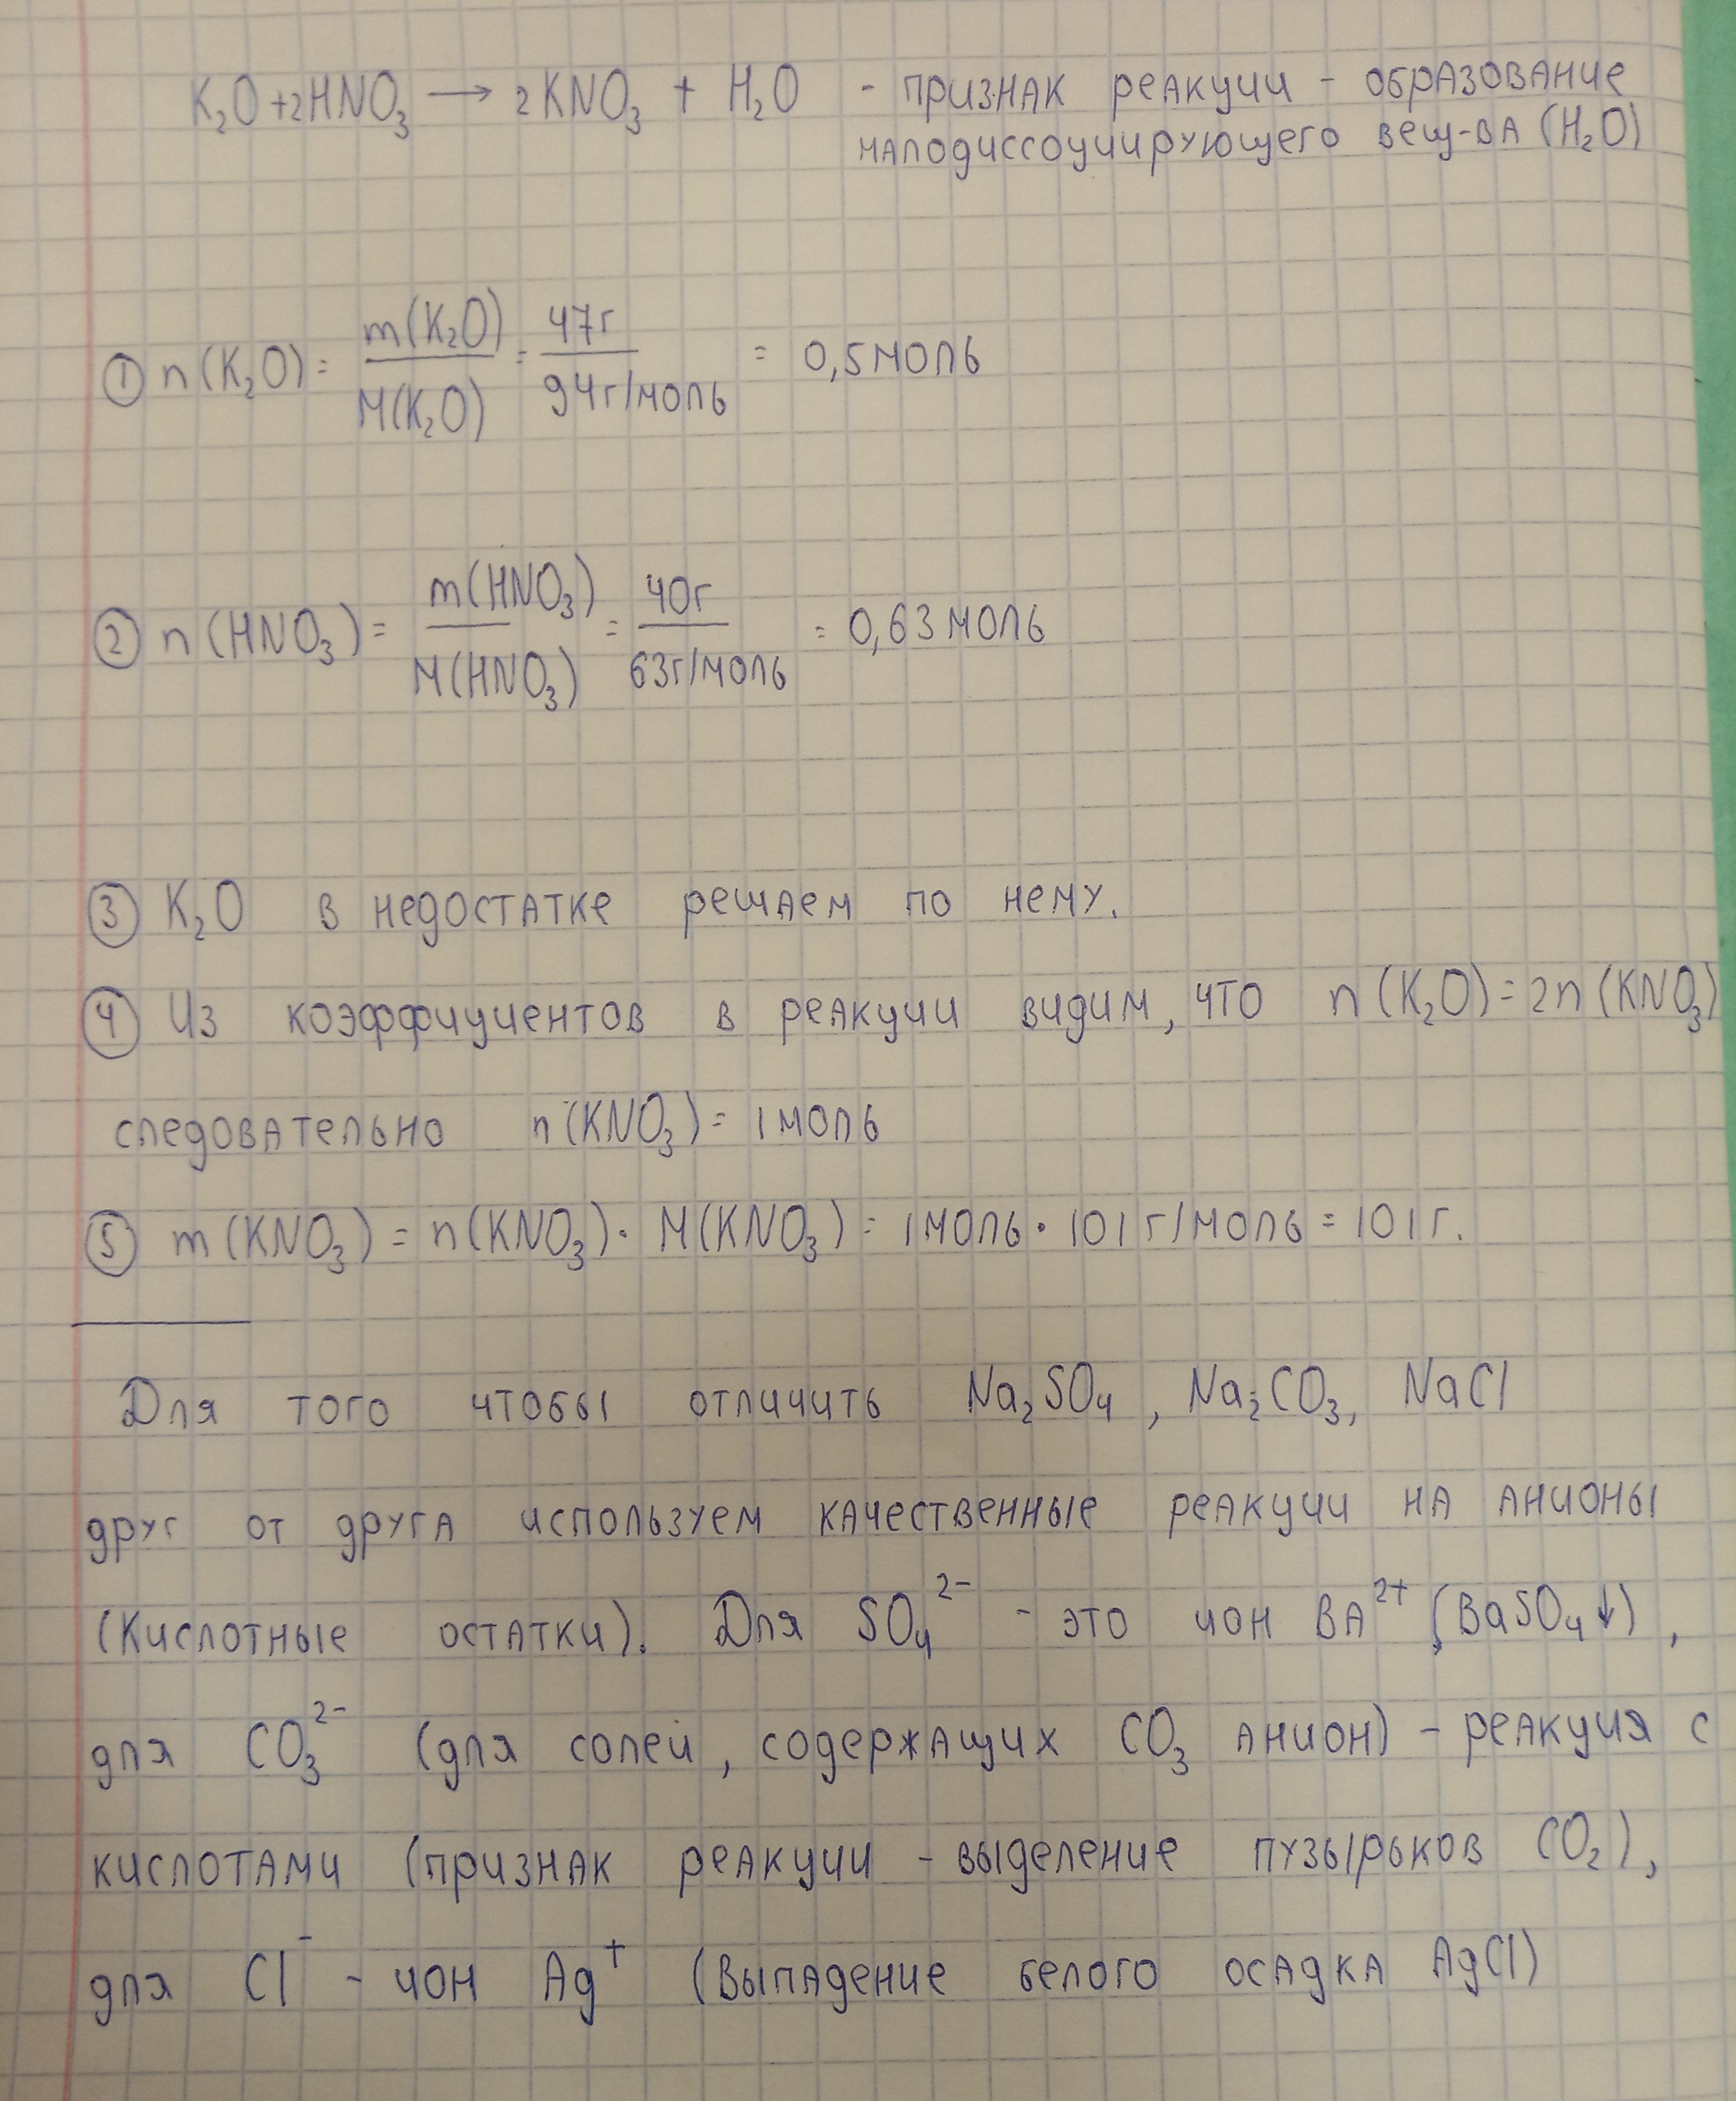 K₂O + 2HNO₃ → 2KNO₃ + H₂O - признак реакции - образование
малодиссоциирующего вещ-ва (H₂O)
① n(K₂O) = m(K₂O)/M(K₂O) = 47г/94г/моль = 0,5 моль
② n(HNO₃) = m(HNO₃)/M(HNO₃) = 40г/63г/моль = 0,63 моль
③ K₂O в недостатке решаем по нему.
④ Из коэффициентов в реакции видим, что n(K₂O) = 2n(KNO₃)
следовательно n(KNO₃) = 1 моль
⑤ m(KNO₃) = n(KNO₃) · M(KNO₃) = 1 моль · 101 г/моль = 101 г.
Для того чтобы отличить Na₂SO₄, Na₂CO₃, NaCl
друг от друга используем качественные реакции на анионы
(Кислотные остатки). Для SO₄²⁻ - это ион BA²⁺ (BaSO₄↓),
для CO₃²⁻ (для солей, содержащих CO₃ анион) - реакция с
кислотами (признак реакции - выделение пузырьков CO₂),
для Cl⁻ - ион Ag⁺ (Выпадение белого осадка AgCl)